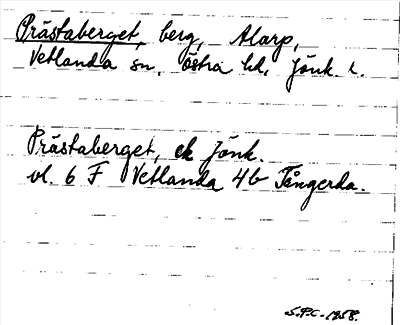 Prästaberget, berg, Alarp,
Vetlanda sn, östra hd, Jönk. l.
Prästaberget, ek Jönk.
bl. 6 F Vetlanda 4b Tångerda.
S.P.C. 1958.